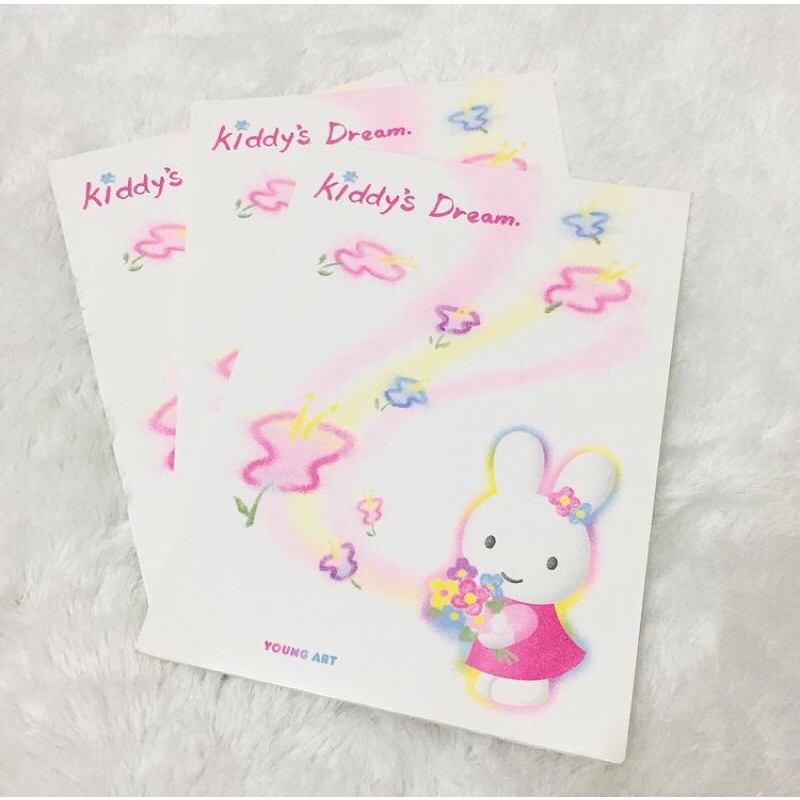 kiddy's Dream.
kiddy's
kiddy's Dream.
YOUNG ART